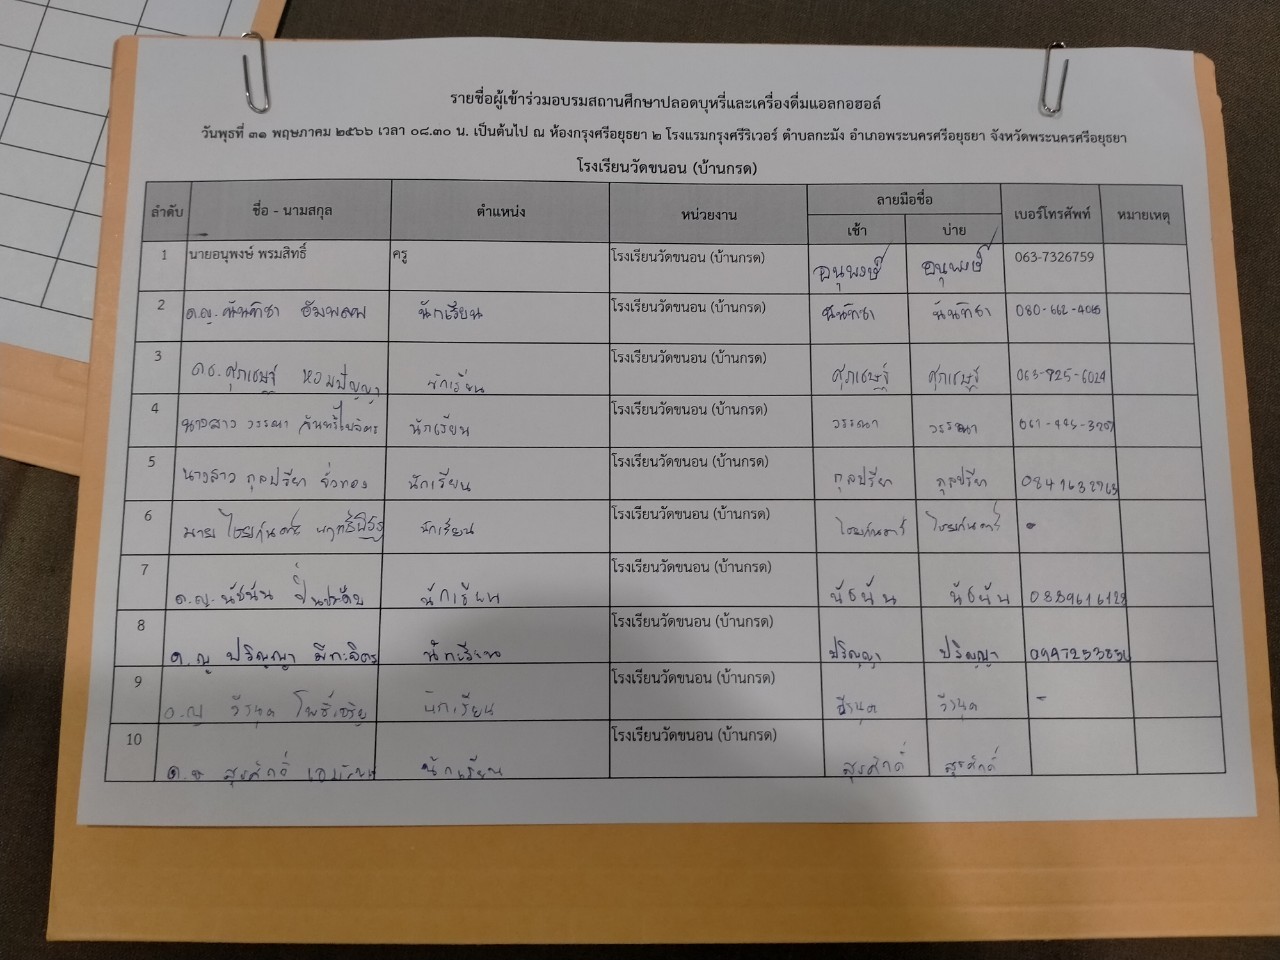 รายชื่อผู้เข้าร่วมอบรมสถานศึกษาปลอดบุหรี่และเครื่องดื่มแอลกอฮอล์
วันพุธที่ ๓๑ พฤษภาคม ๒๕๖๖ เวลา ๐๘.๓๐ น. เป็นต้นไป ณ ห้องกรุงศรีอยุธยา ๒ โรงแรมกรุงศรีริเวอร์ ตำบลกะมัง อำเภอพระนครศรีอยุธยา จังหวัดพระนครศรีอยุธยา
โรงเรียนวัดขนอน (บ้านกรด)
ลำดับ ชื่อ - นามสกุล ตำแหน่ง หน่วยงาน ลายมือชื่อ เบอร์โทรศัพท์ หมายเหตุ
เช้า บ่าย
1 นายอนุพงษ์ พรมสิทธิ์ ครู โรงเรียนวัดขนอน (บ้านกรด) อนุพงษ์ อนุพงษ์ 063-7326759
2 ด.ญ. นันทิชา นักเรียน โรงเรียนวัดขนอน (บ้านกรด) นันทิชา นันทิชา
3 ด.ช. ศุภเชษฐ์ หอมปัญญา นักเรียน โรงเรียนวัดขนอน (บ้านกรด) ศุภเชษฐ์ ศุภเชษฐ์
4 นางสาว วรรณา นักเรียน โรงเรียนวัดขนอน (บ้านกรด) วรรณา วรรณา
5 นางสาว กุลปรียา นักเรียน โรงเรียนวัดขนอน (บ้านกรด) กุลปรียา กุลปรียา
6 นาย นักเรียน โรงเรียนวัดขนอน (บ้านกรด)
7 ด.ญ. นัชนัน นักเรียน โรงเรียนวัดขนอน (บ้านกรด) นัชนัน นัชนัน
8 ด.ญ ปริญญา นักเรียน โรงเรียนวัดขนอน (บ้านกรด) ปริญญา ปริญญา
9 ด.ญ นักเรียน โรงเรียนวัดขนอน (บ้านกรด) -
10 ด.ช สุรศักดิ์ นักเรียน โรงเรียนวัดขนอน (บ้านกรด) สุรศักดิ์ สุรศักดิ์